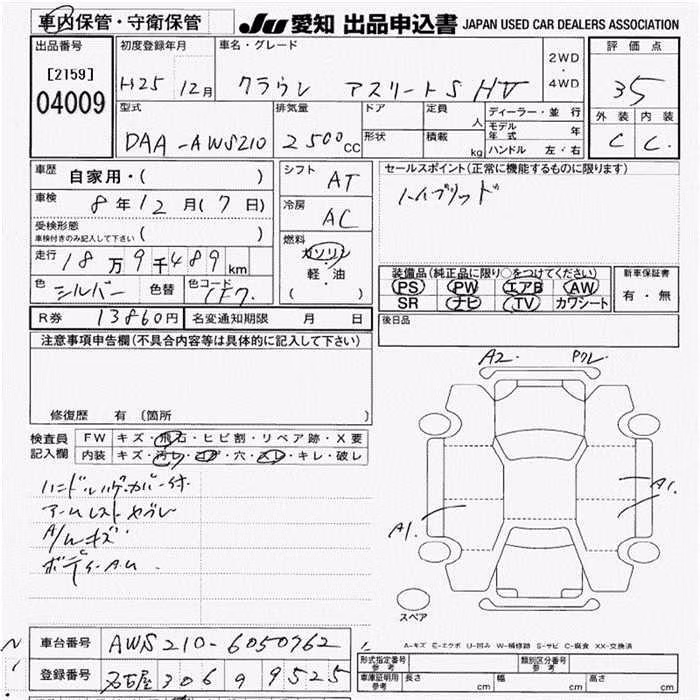 車内保管・守衛保管
JU 愛知 出品申込書 JAPAN USED CAR DEALERS ASSOCIATION
出品番号
[2159]
04009
初度登録年月
H25 12月
車名・グレード
クラウン アスリートS HV
2WD
・
4WD
評価点
35
外装 内装
C C
型式
DAA-AWS210
排気量
2500CC
ドア
形状
定員
人
積載
kg
ディーラー・並行
モデル年式 年
ハンドル 左・右
車歴 自家用・( )
車検 8年12月(7日)
受検形態
車検付きのみ記入して下さい ( )
走行 18万9千489km
色 シルバー 色替 色コード 1F7
シフト AT
冷房 AC
燃料
ガソリン
軽・油
( )
セールスポイント(正常に機能するものに限ります)
ハイブリッド
装備品(純正品に限り○をつけてください)
PS PW エアB AW
SR ナビ TV カワシート
新車保証書
有・無
後日品
R券 13860円 名変通知期限 月 日
注意事項申告欄(不具合内容等は具体的に記入して下さい)
修復歴 有 (箇所 )
検査員記入欄
FW キズ・飛石・ヒビ割・リペア跡・X要
内装 キズ・汚レ・コゲ・穴・スレ・キレ・破レ
ハンドルハゲ・カバー付
アームレストヤブレ
A/Wキズ
A2
A1
A1.
A-キズ E-エクボ U-凹み W-補修跡 S-サビ C-腐食 XX-交換済
車台番号 AWS210-6050962
登録番号 名古屋 306 9525
形式指定番号 参考
類別区分番号 参考
車庫証明用 参考 長さ cm 幅 cm 高さ cm